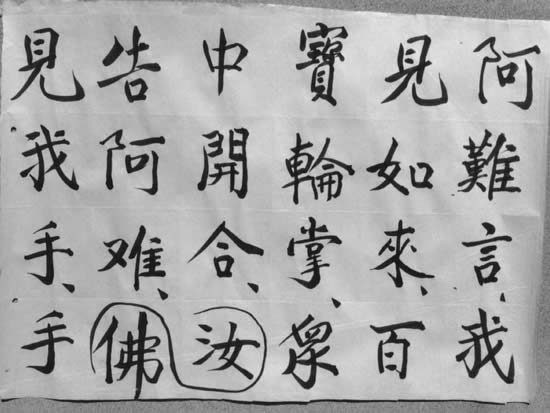 阿難言、我
見如來、百
寶輪掌、衆
中開合、汝
告阿难、佛
見我手、手